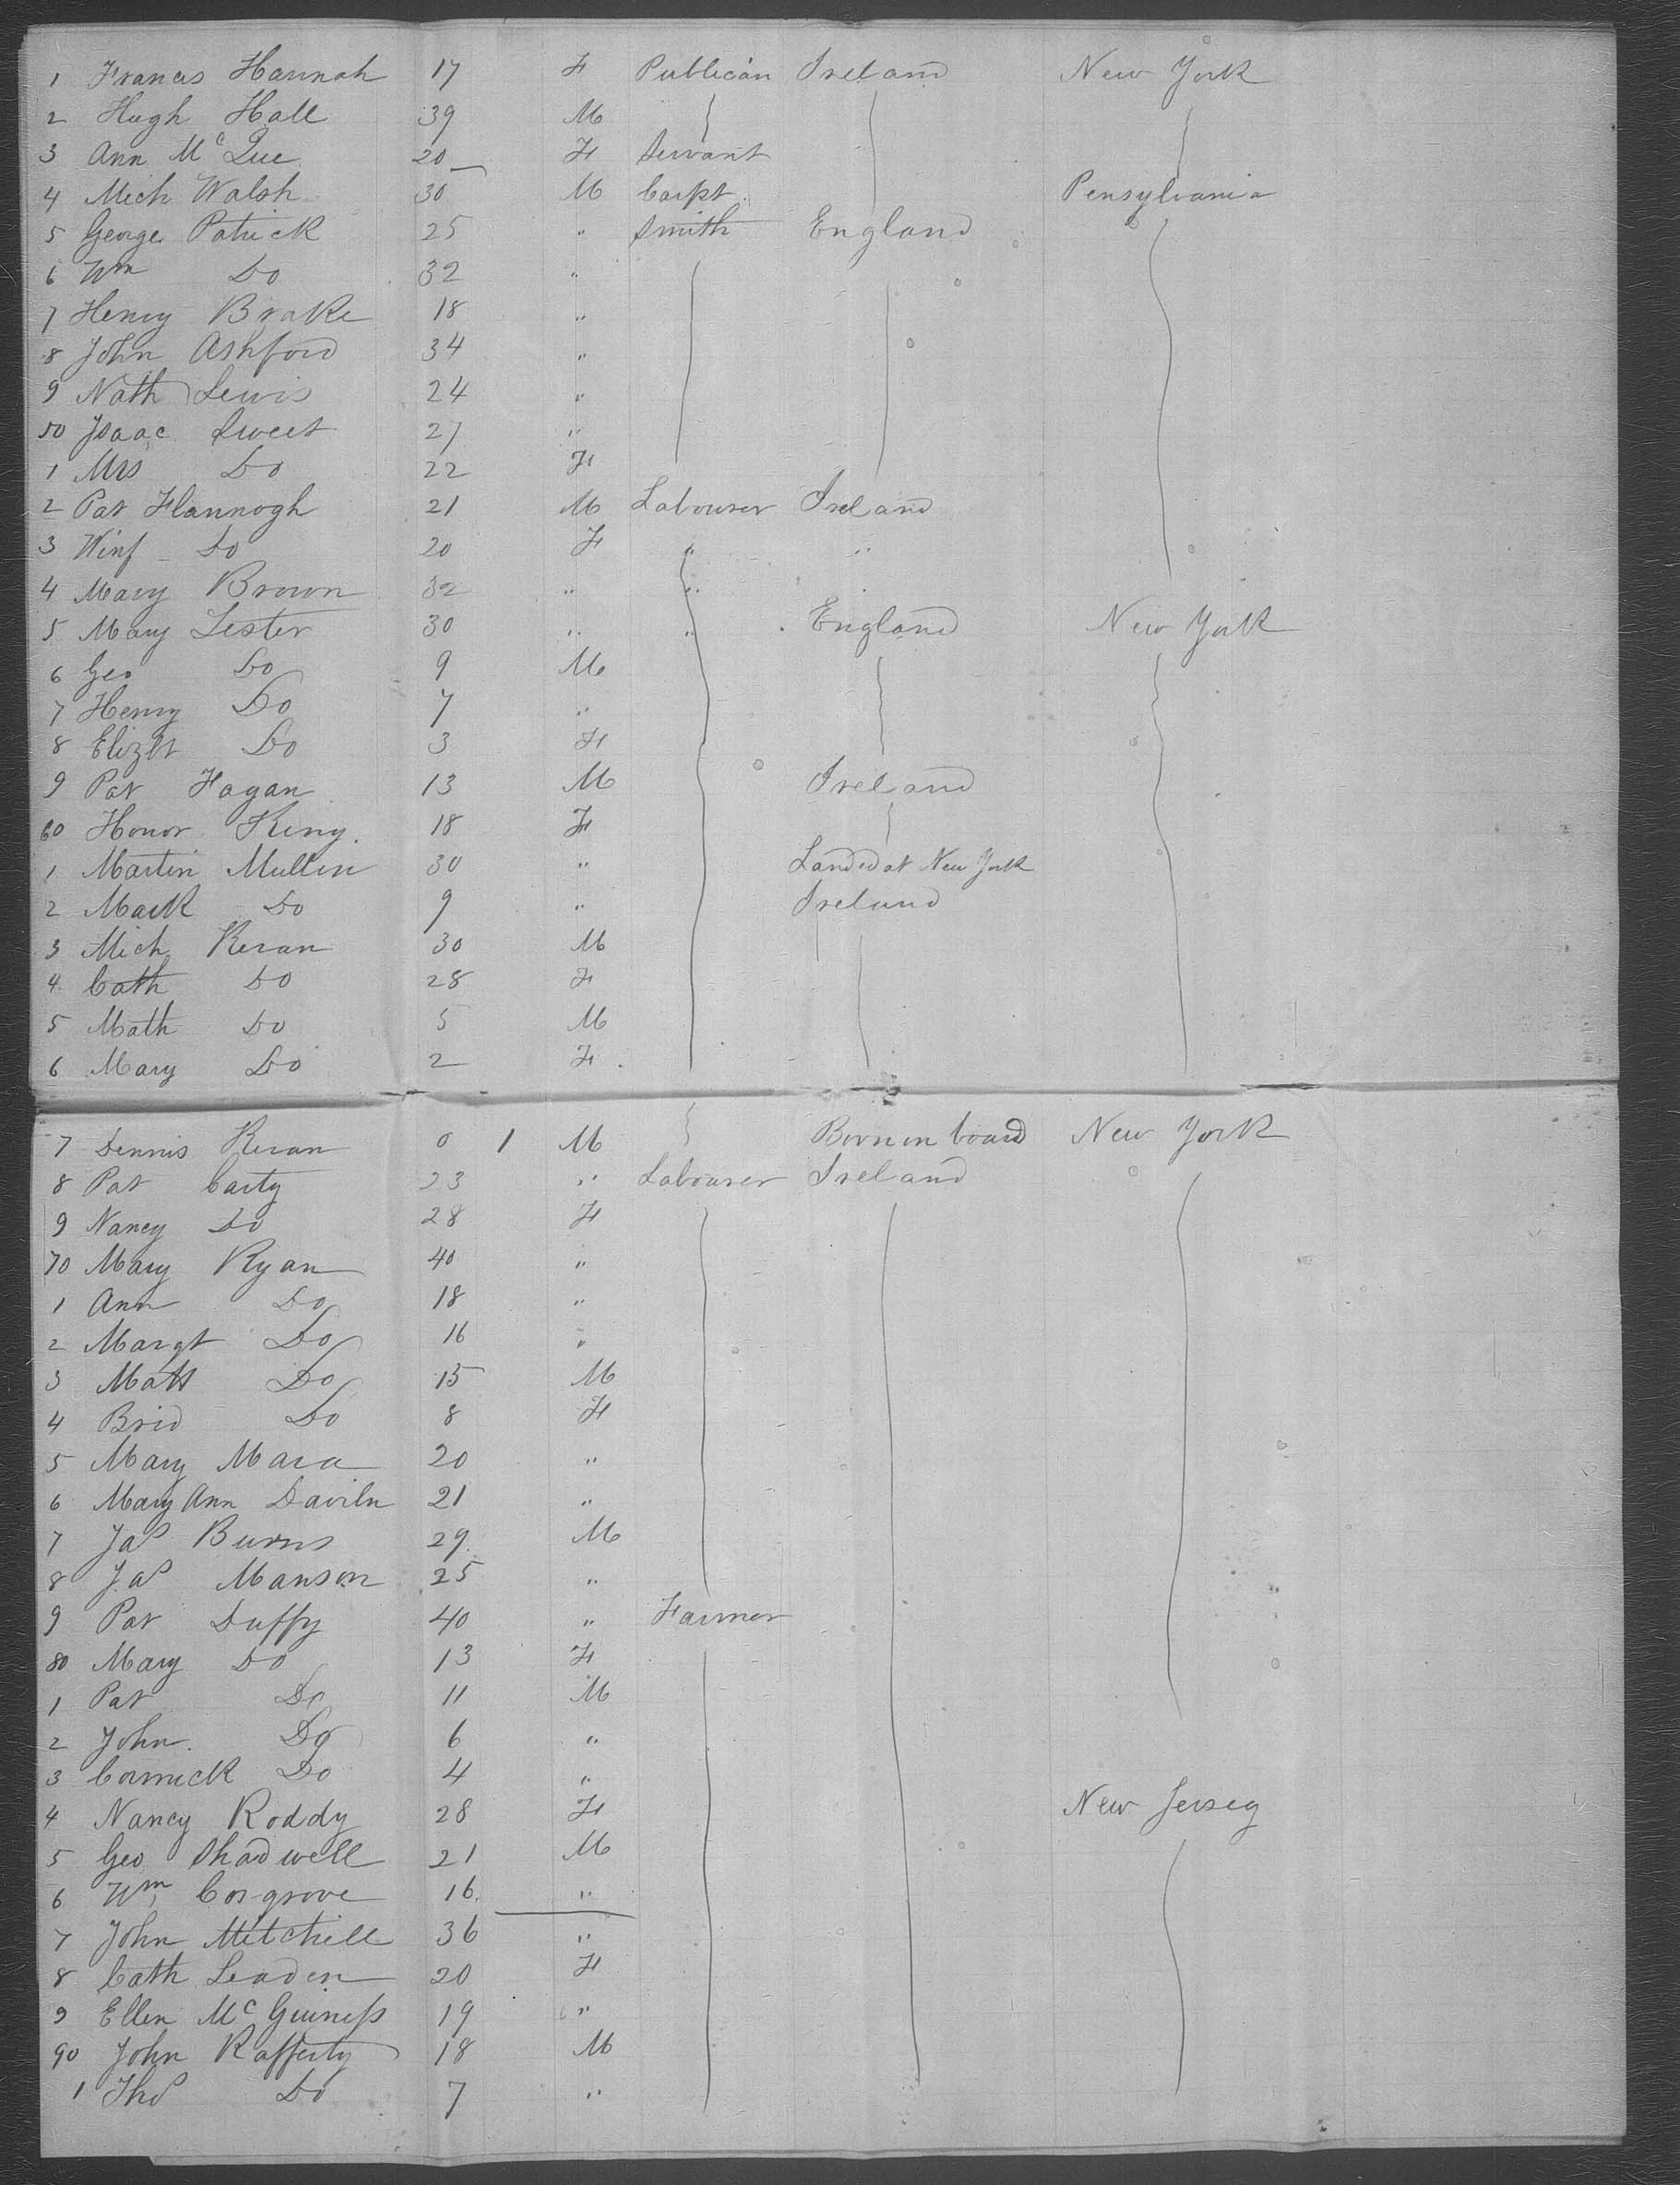 1 Francis Hannah 17 F Publican Ireland New York
2 Hugh Hall 39 M
3 Ann Mc Que 20 F Servant
4 Mich Walsh 30 M Carpt Pensylvania
5 George Patrick 25 " Smith England
6 Wm Do 32 "
7 Henry Brake 18 "
8 John Ashford 34 "
9 Nath Lewis 24 "
50 Isaac Sweet 27 "
1 Mrs Do 22 F
2 Pat Flannogh 21 M Labourer Ireland
3 Winf Do 20 F " "
4 Mary Brown 32 " "
5 Mary Lester 30 " " England New York
6 Geo Do 9 M
7 Henry Do 7 "
8 Elizbt Do 3 F
9 Pat Fagan 13 M Ireland
60 Honor King 18 F
1 Martin Mullin 30 " Landed at New York
2 Mark Do 9 " Ireland
3 Mich Keran 30 M
4 Cath Do 28 F
5 Math Do 5 M
6 Mary Do 2 F
7 Dennis Keran 0 1 M Born on board New York
8 Pat Carty 23 " Labourer Ireland
9 Nancy Do 28 F
70 Mary Ryan 40 "
1 Ann Do 18 "
2 Margt Do 16 "
3 Matt Do 15 M
4 Brid Do 8 F
5 Mary Mara 20 "
6 Mary Ann Daviln 21 "
7 Jas Burns 29 M
8 Jas Manson 25 "
9 Pat Duffy 40 " Farmer
80 Mary Do 13 F
1 Pat Do 11 M
2 John Do 6 "
3 Cormick Do 4 "
4 Nancy Roddy 28 F New Jersey
5 Geo Shadwell 21 M
6 Wm Cosgrove 16 "
7 John Mitchell 36 "
8 Cath Leaden 20 F
9 Ellen Mc Guiness 19 "
90 John Rafferty 18 M
1 Thos Do 7 "